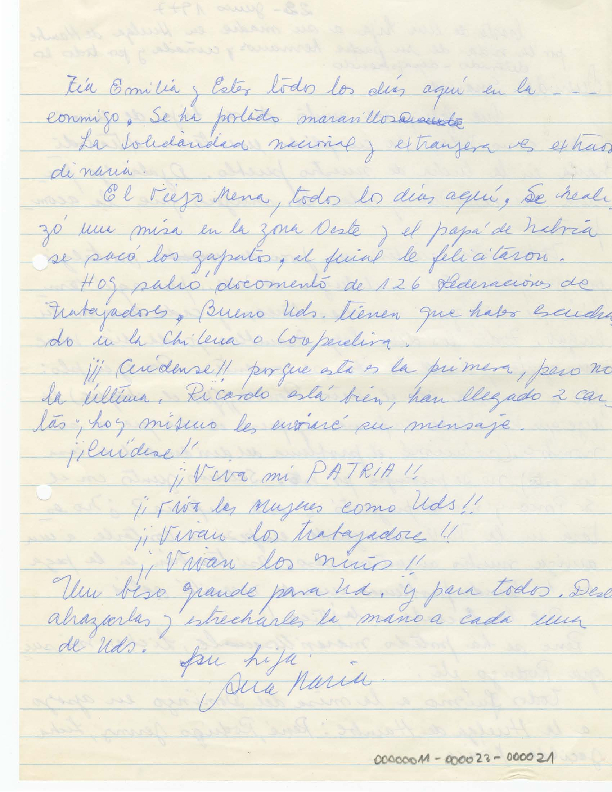 Tía Emilia y Ester todos los días aquí en la - - -
conmigo. Se ha portado maravillos
La Solidaridad nacional y extranjera es extraor
dinaria
El Viejo Mena, todos los días aquí, se reali
zó una misa en la zona Oeste y el papá de
se sacó los zapatos, al final le felicitaron.
Hoy salió documento de 126 Federaciones de
trabajadores, Bueno Uds. tienen que haber escucha
do en la Chilena o Cooperativa.
¡¡¡ Cuídense!! porque esta es la primera, pero no
la última. Ricardo está bien, han llegado 2 car
tas, hoy mismo les enviaré su mensaje.
¡¡Cuídese!!
¡¡Viva mi PATRIA!!
¡¡ Viva las Mujeres como Uds!!
¡¡ Vivan los trabajadores!!
¡¡ Vivan los niños!!
Un beso grande para Ud. y para todos. Dese
abrazarlas y estrecharles la mano a cada una
de Uds.
Su hija
Ana María
00000011-000023-000021